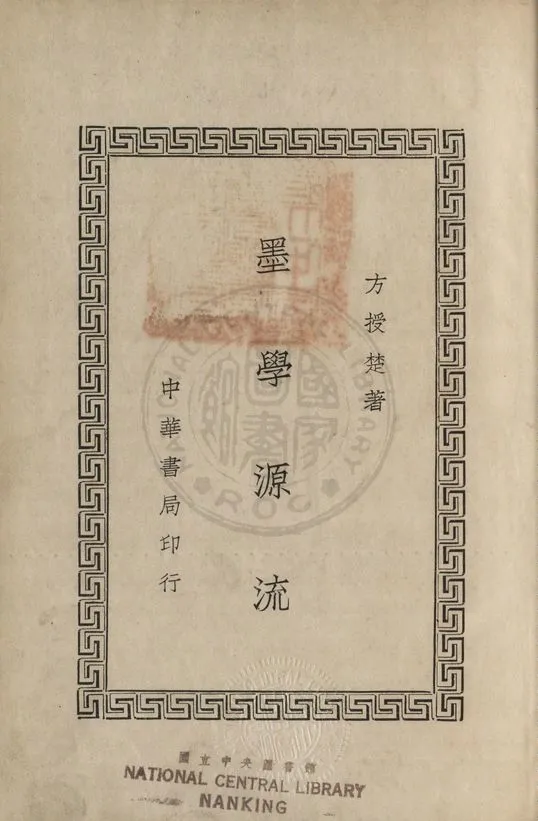 方授楚著
墨學源流
中華書局印行
國家圖書館
NATIONAL CENTRAL LIBRARY
R.O.C.
國立中央圖書館
NATIONAL CENTRAL LIBRARY
NANKING